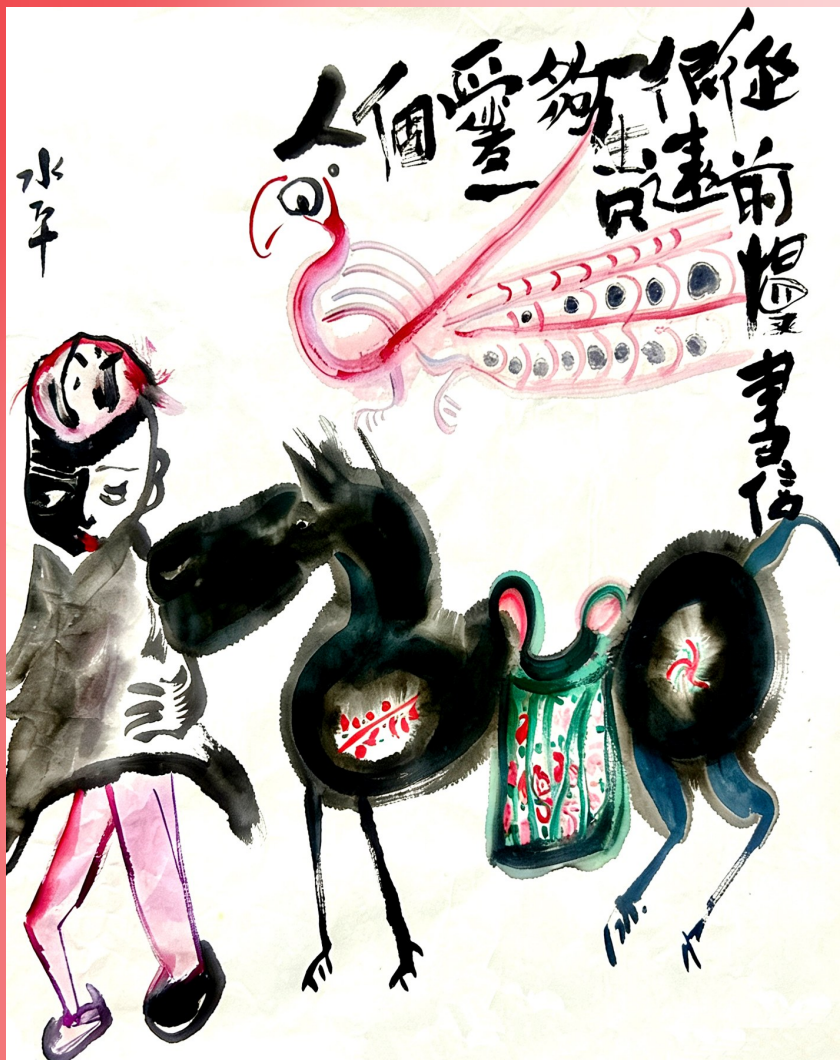 從前慢書信
很遠
一生只
夠
愛一
個
人
水平